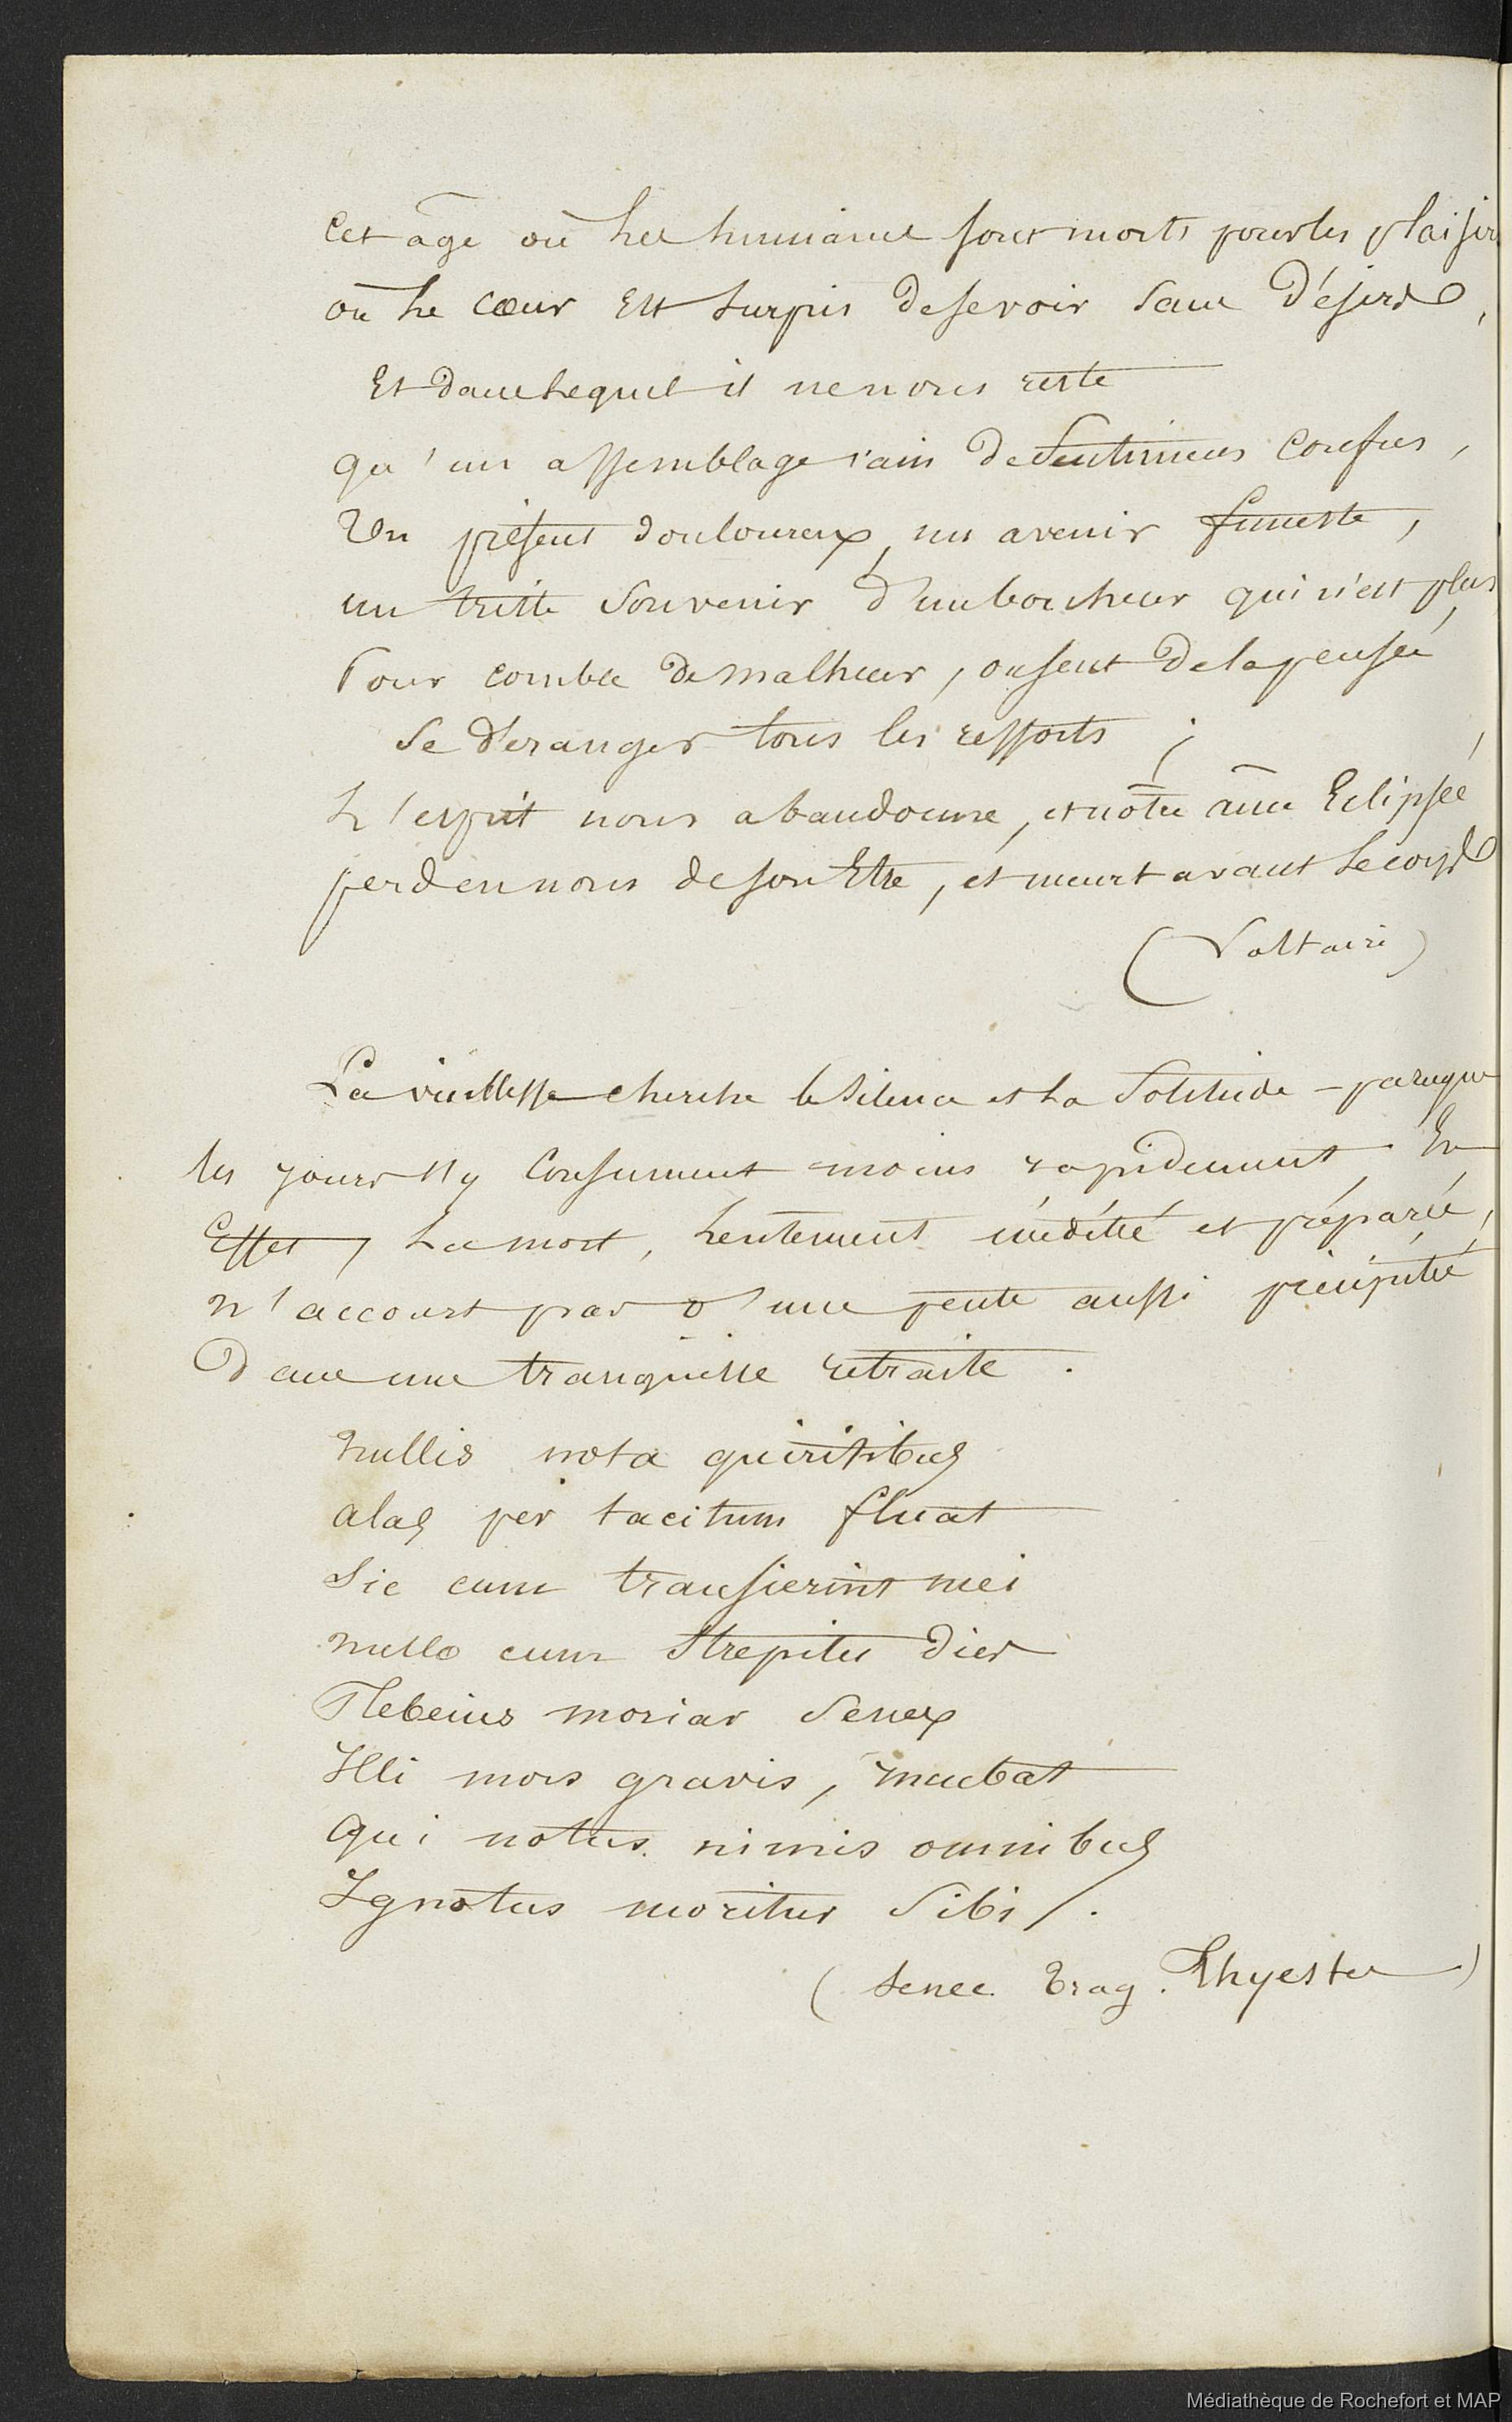 Cet âge où les humains sont morts pour les plaisirs
où le cœur Est surpris de se voir sans désirs,
Et dans lequel il ne nous reste
qu'un assemblage vain de sentimens confus,
Un présent douloureux, un avenir funeste,
un triste souvenir d'un bonheur qui n'est plus,
Pour comble de malheur, on sent de la pensée
Se déranger tous les ressorts ;
L'esprit nous abandonne, et nôtre âme Eclipsée
perd en nous de son Etre, et meurt avant le corps
(Voltaire)
La vieillesse cherche le silence et la Solitude - parceque
les jours s'y Consument moins rapidement, En
Effet, La mort, Lentement médité et préparée,
n'accourt pas d'une pente aussi précipitée
Dans une tranquille retraite.
nullis nota quiritibus
alas per tacitum fluat
Sic cum transierint mei
nullo cum Strepitu dies
Plebeius moriar Senex
Illi mors gravis, incubat
Qui notus nimis omnibus
Ignotus moritur Sibi.
(Senec. Trag. Thyeste)
Médiathèque de Rochefort et MAP